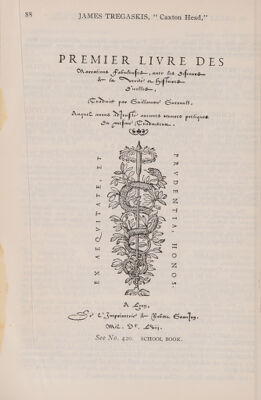 88 JAMES TREGASKIS, "Caxton Head,"
PREMIER LIVRE DES
Narrations Fabuleuses, avec les discours
de la Verité & histoires
d'icelles.
Traduit par Guillaume
Auquel avons adjousté aucunes œuvres poetiques
du mesme Traducteur.
EN AEQVITATE, ET
PRVDENTIA, HONOS.
A Lyon,
De l'Imprimerie de Robert Granjon.
Mil. Vc. Lviii.
See No. 420. SCHOOL BOOK.